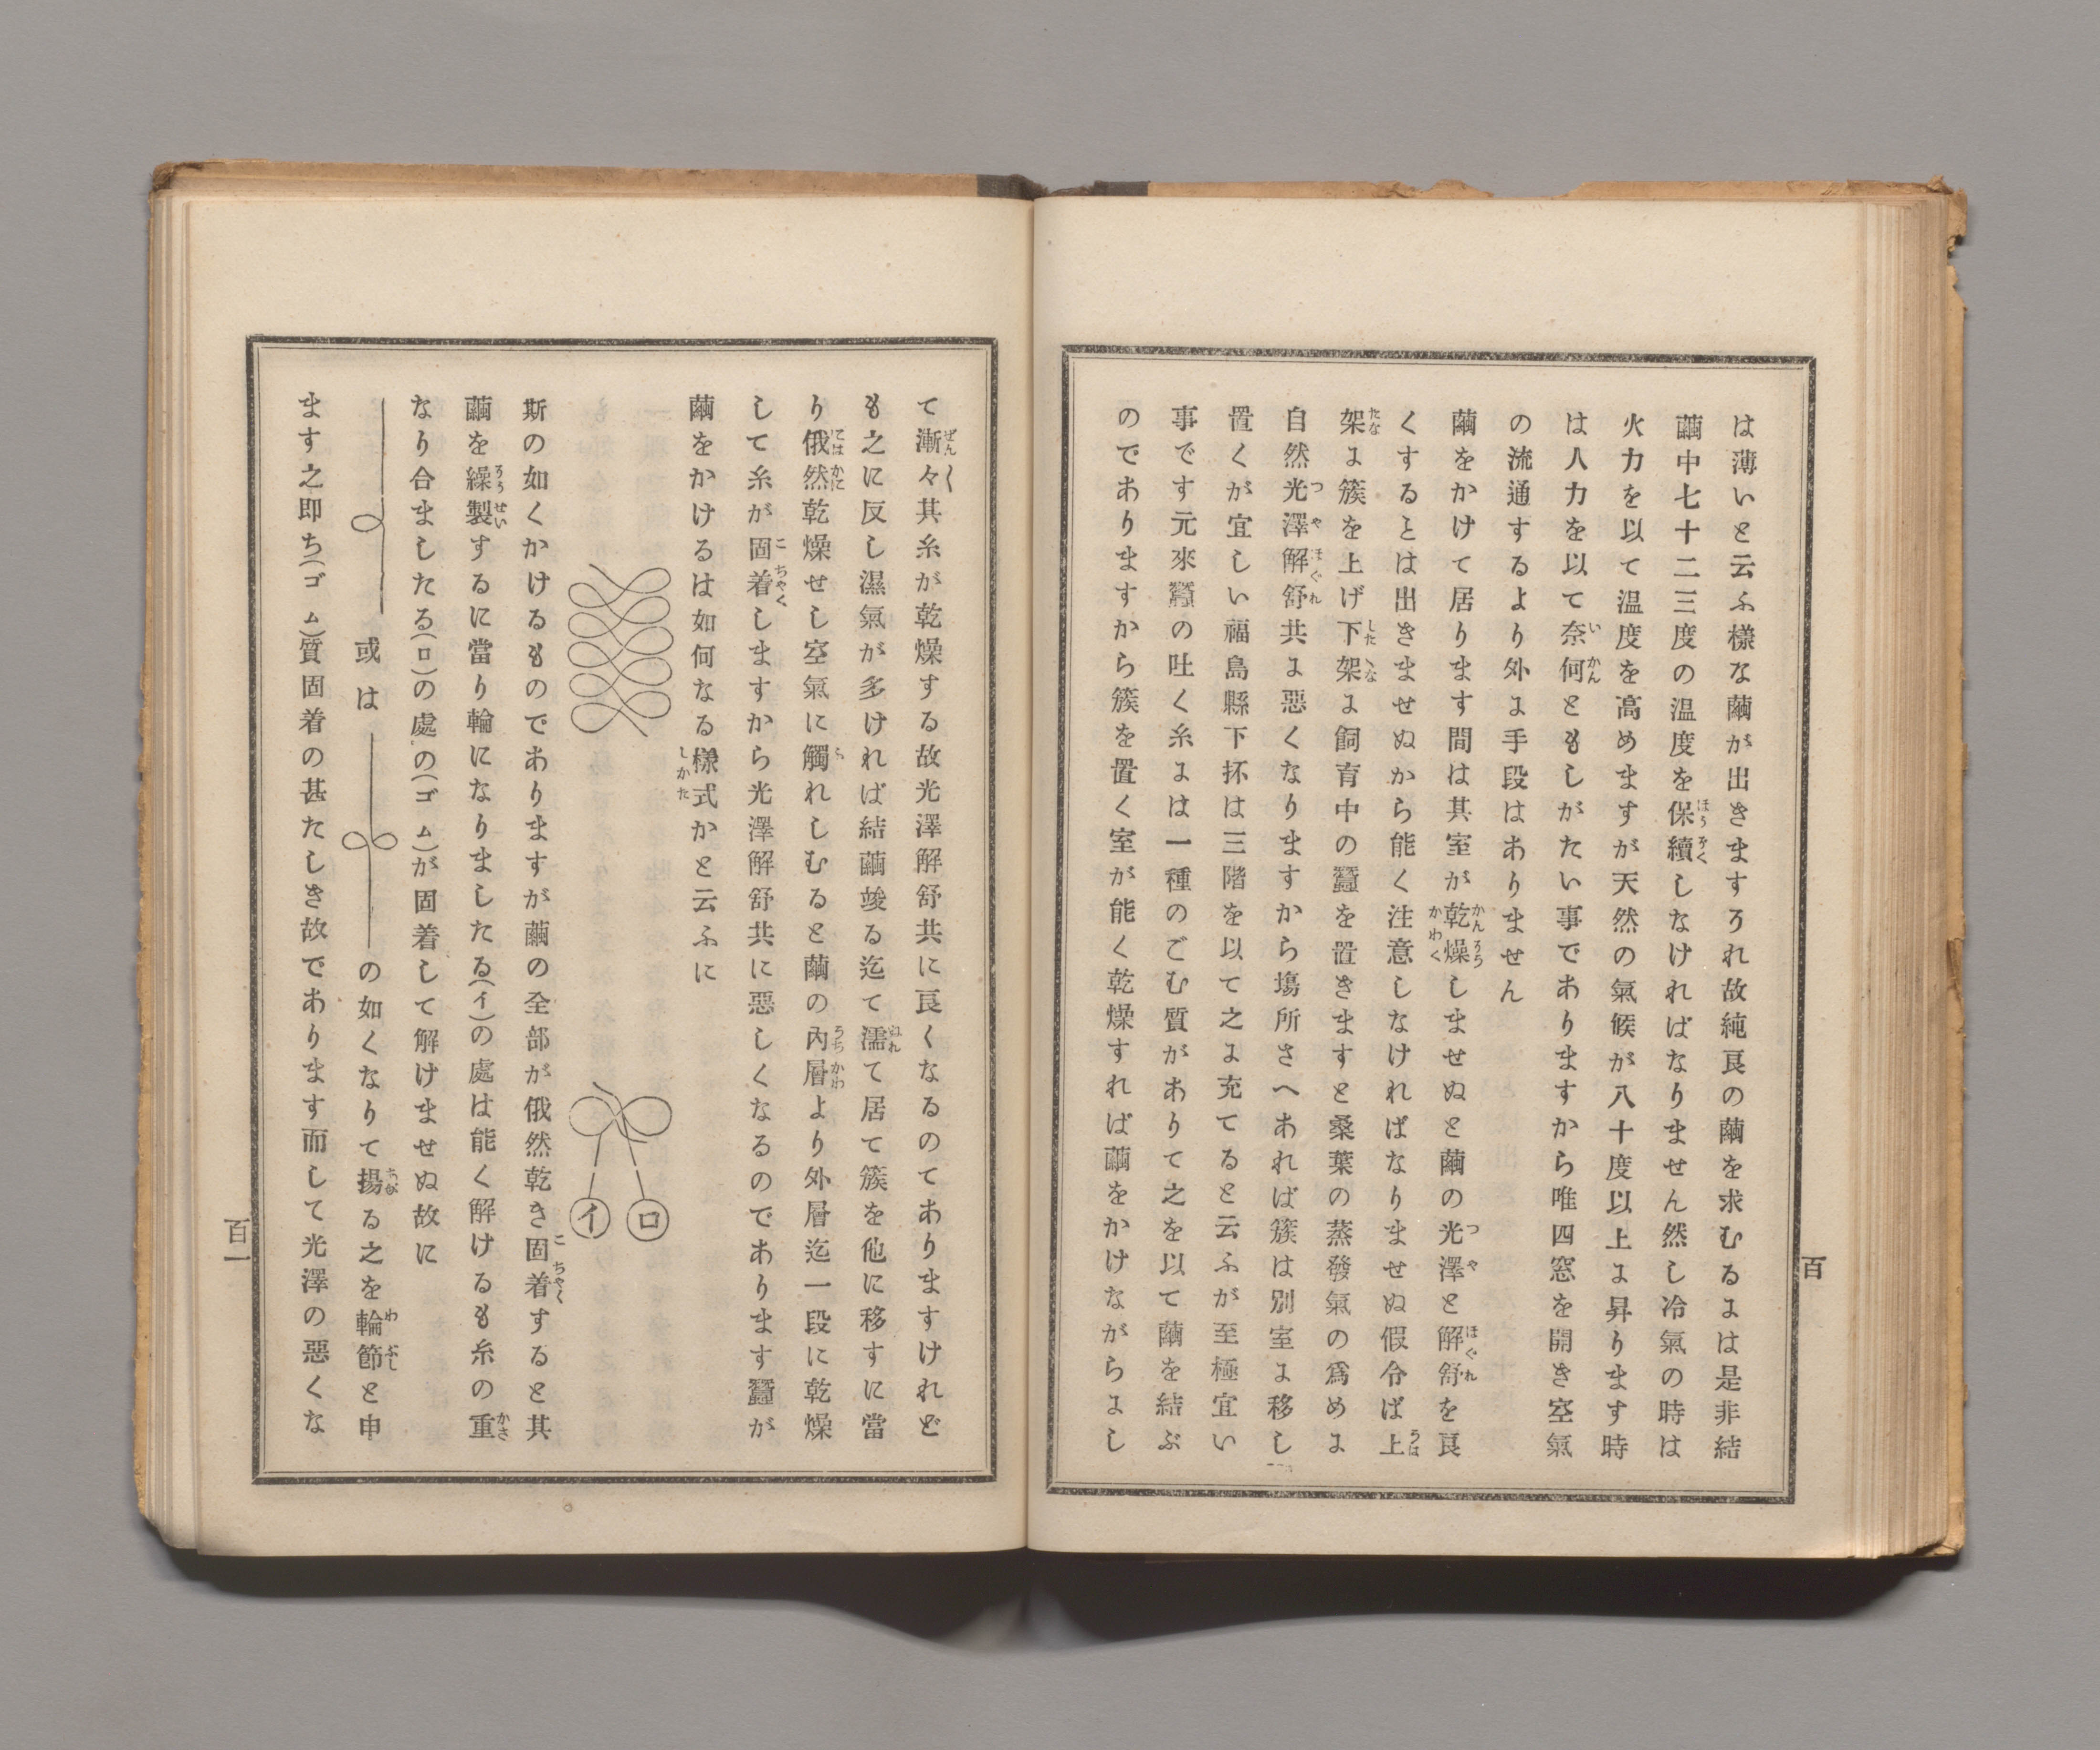 は薄いと云ふ樣な繭が出きますろれ故純良の繭を求むるには是非結
繭中七十二三度の温度を保續しなければなりません然し冷氣の時は
火力を以て温度を高めますが天然の氣候が八十度以上に昇ります時
は人力を以て奈何ともしがたい事でありますから唯四窓を開き空氣
の流通するより外に手段はありません
繭をかけて居ります間は其室が乾燥しませぬと繭の光澤と解舒を良
くするとは出きませぬから能く注意しなければなりませぬ假令ば上
架に簇を上げ下架に飼育中の蠶を置きますと桑葉の蒸發氣の爲めに
自然光澤解舒共に惡くなりますから塲所さへあれば簇は別室に移し
置くが宜しい福島縣下抔は三階を以て之に充てると云ふが至極宜い
事です元來蠶の吐く糸には一種のごむ質がありて之を以て繭を結ぶ
のでありますから簇を置く室が能く乾燥すれば繭をかけながらにし
百
て漸々其糸が乾燥する故光澤解舒共に良くなるのてありますけれど
も之に反し濕氣が多ければ結繭竣る迄て濡て居て簇を他に移すに當
り俄然乾燥せし空氣に觸れしむると繭の內層より外層迄一段に乾燥
して糸が固着しますから光澤解舒共に惡しくなるのであります蠶が
繭をかけるは如何なる樣式かと云ふに
イ ロ
斯の如くかけるものでありますが繭の全部が俄然乾き固着すると其
繭を繰製するに當り輪になりましたる(イ)の處は能く解けるも糸の重
なり合ましたる(ロ)の處の(ゴム)が固着して解けませぬ故に
或は の如くなりて揚る之を輪節と申
ます之即ち(ゴム)質固着の甚たしき故であります而して光澤の惡くな
百一